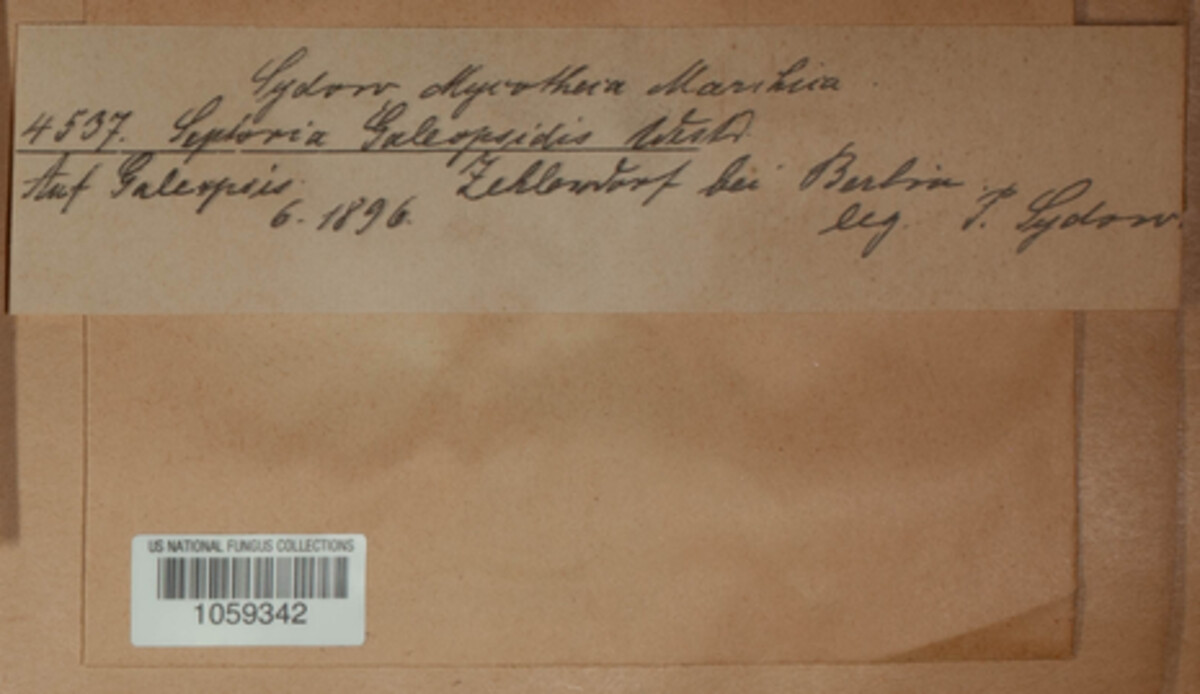 Sydow Mycotheca Marchica
4537. Septoria Galeopsidis Westd.
Auf Galeopsis. Zehlendorf bei Berlin.
6. 1896. leg. P. Sydow.
US NATIONAL FUNGUS COLLECTIONS
1059342